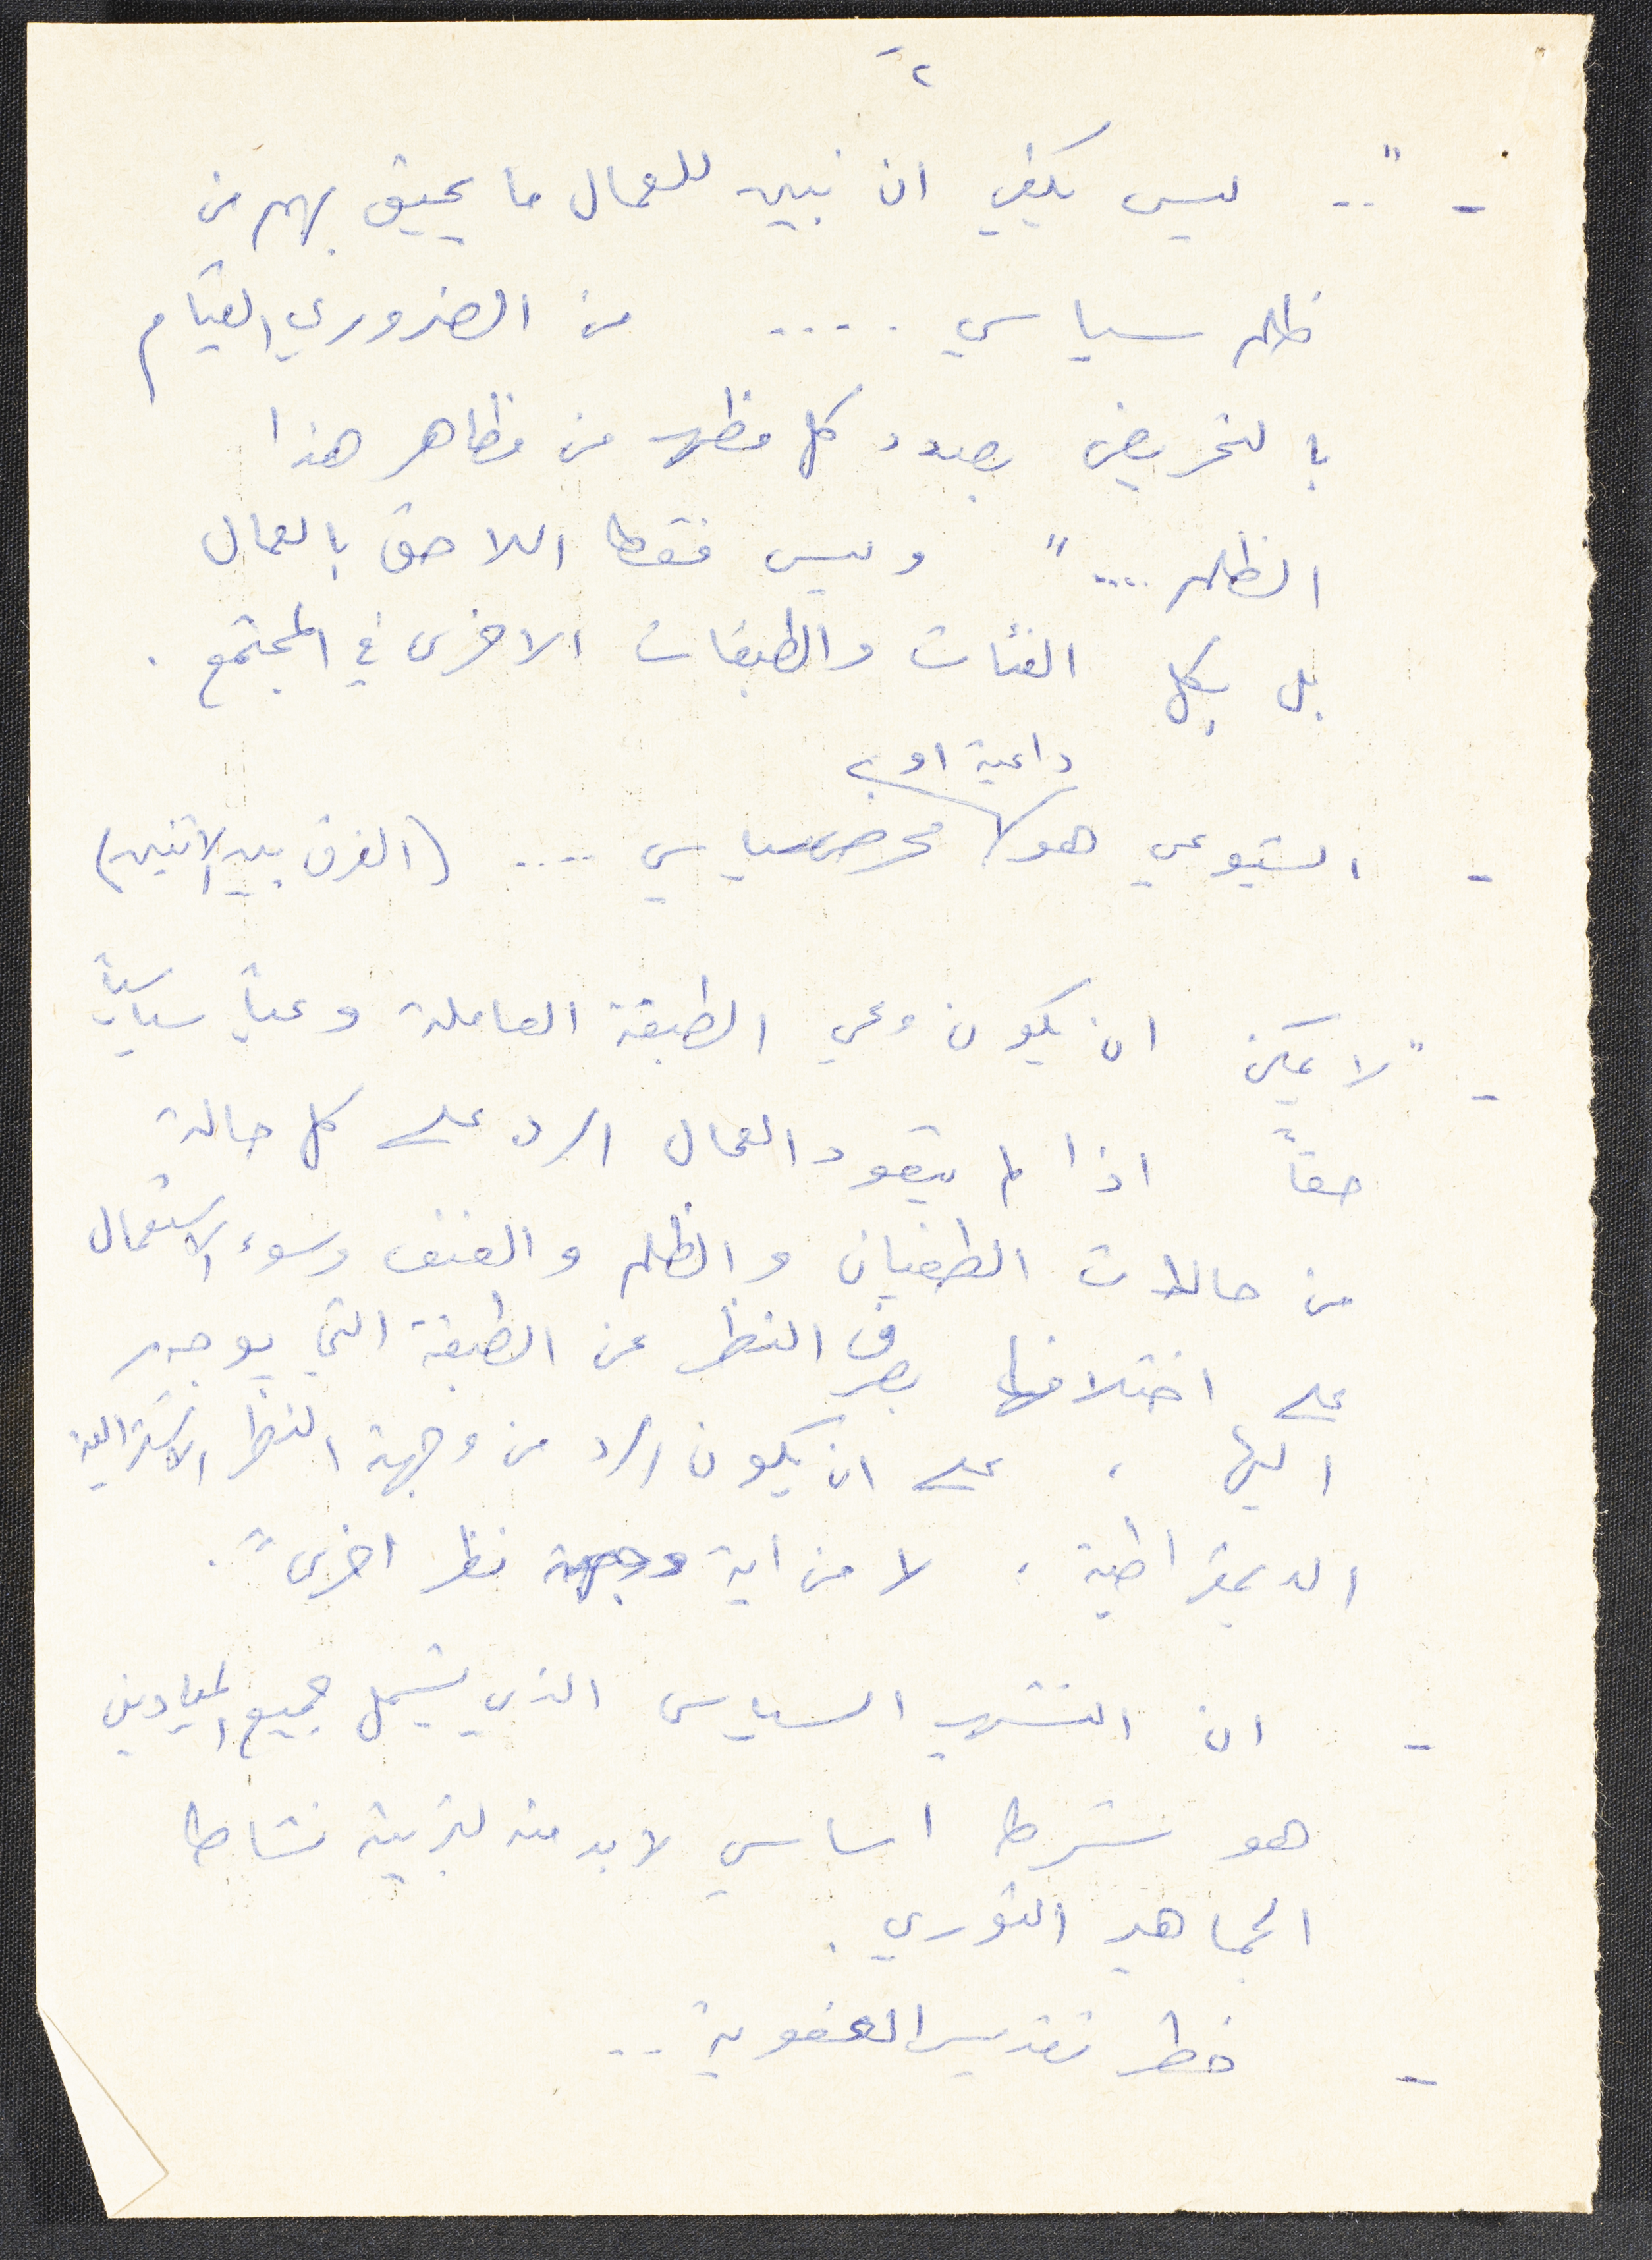 ٢
- ".. ليس يكفي ان نبين للعمال ما يحيق بهم من
ظلم سياسي ..... من الضروري القيام
بالتحريض بصدد كل مظهر من مظاهر هذا
الظلم ...." وليس فقط اللاحق بالعمال
بل بكل الفئات والطبقات الاخرى في المجتمع .
داعية او
- الشيوعي هو محرض سياسي .... (الفرق بين الاثنين)
- "لا يمكن ان يكون وعي الطبقة العاملة وعياً سياسياً
حقاً اذا لم يتعود العمال الرد على كل حالة
من حالات الطغيان والظلم والعنف وسوء الاستعمال
على اختلافها بصرف النظر عن الطبقة التي يوجه
اليها ، على ان يكون الرد من وجهة النظر الاشتراكية
الديمقراطية ، لا من اية وجهة نظر اخرى" .
- ان التشهير السياسي الذي يشمل جميع الميادين
هو شرط اساسي لا بد منه لتربية نشاط
الجماهير الثوري .
- خطر تقديس العفوية ..